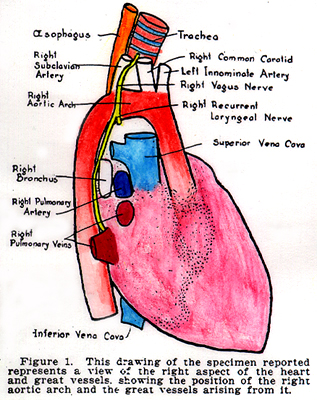 Œsophagus
Trachea
Right
Subclavian
Artery
Right Common Carotid
Left Innominate Artery
Right Vagus Nerve
Right
Aortic Arch
Right Recurrent
Laryngeal Nerve
Superior Vena Cava
Right
Bronchus
Right Pulmonary
Artery
Right
Pulmonary Veins
Inferior Vena Cava
Figure 1. This drawing of the specimen reported
represents a view of the right aspect of the heart
and great vessels, showing the position of the right
aortic arch and the great vessels arising from it.